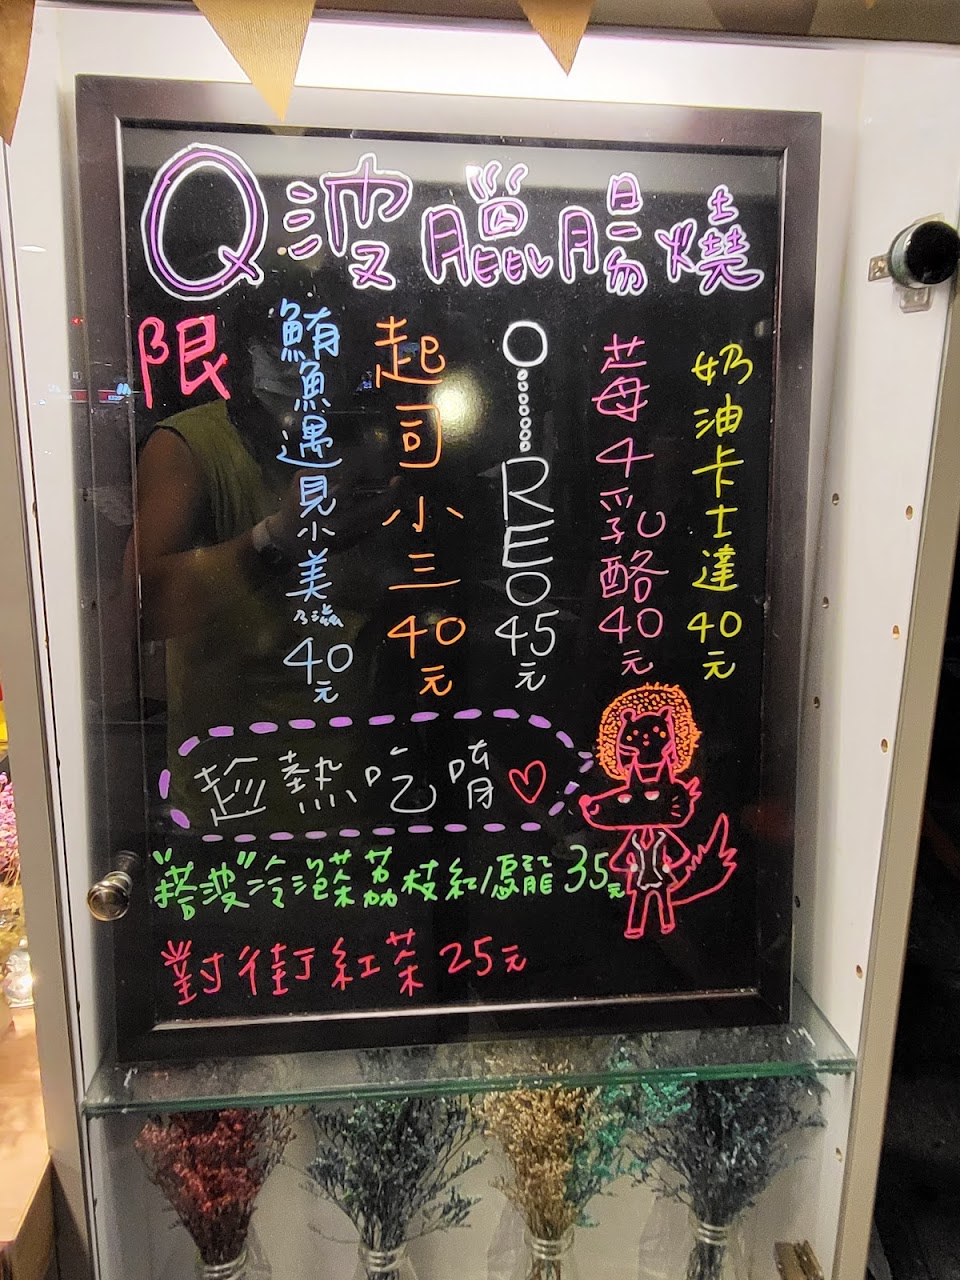 Q波臘腸燒
限
鮪魚遇見小美
40元
起司小三
40元
O
REO
45元
莓4乳酪
40元
奶油卡士達
40元
趁熱吃唷
"搭波"冷泡茶荔枝紅/凍龍 35元
對街紅茶 25元